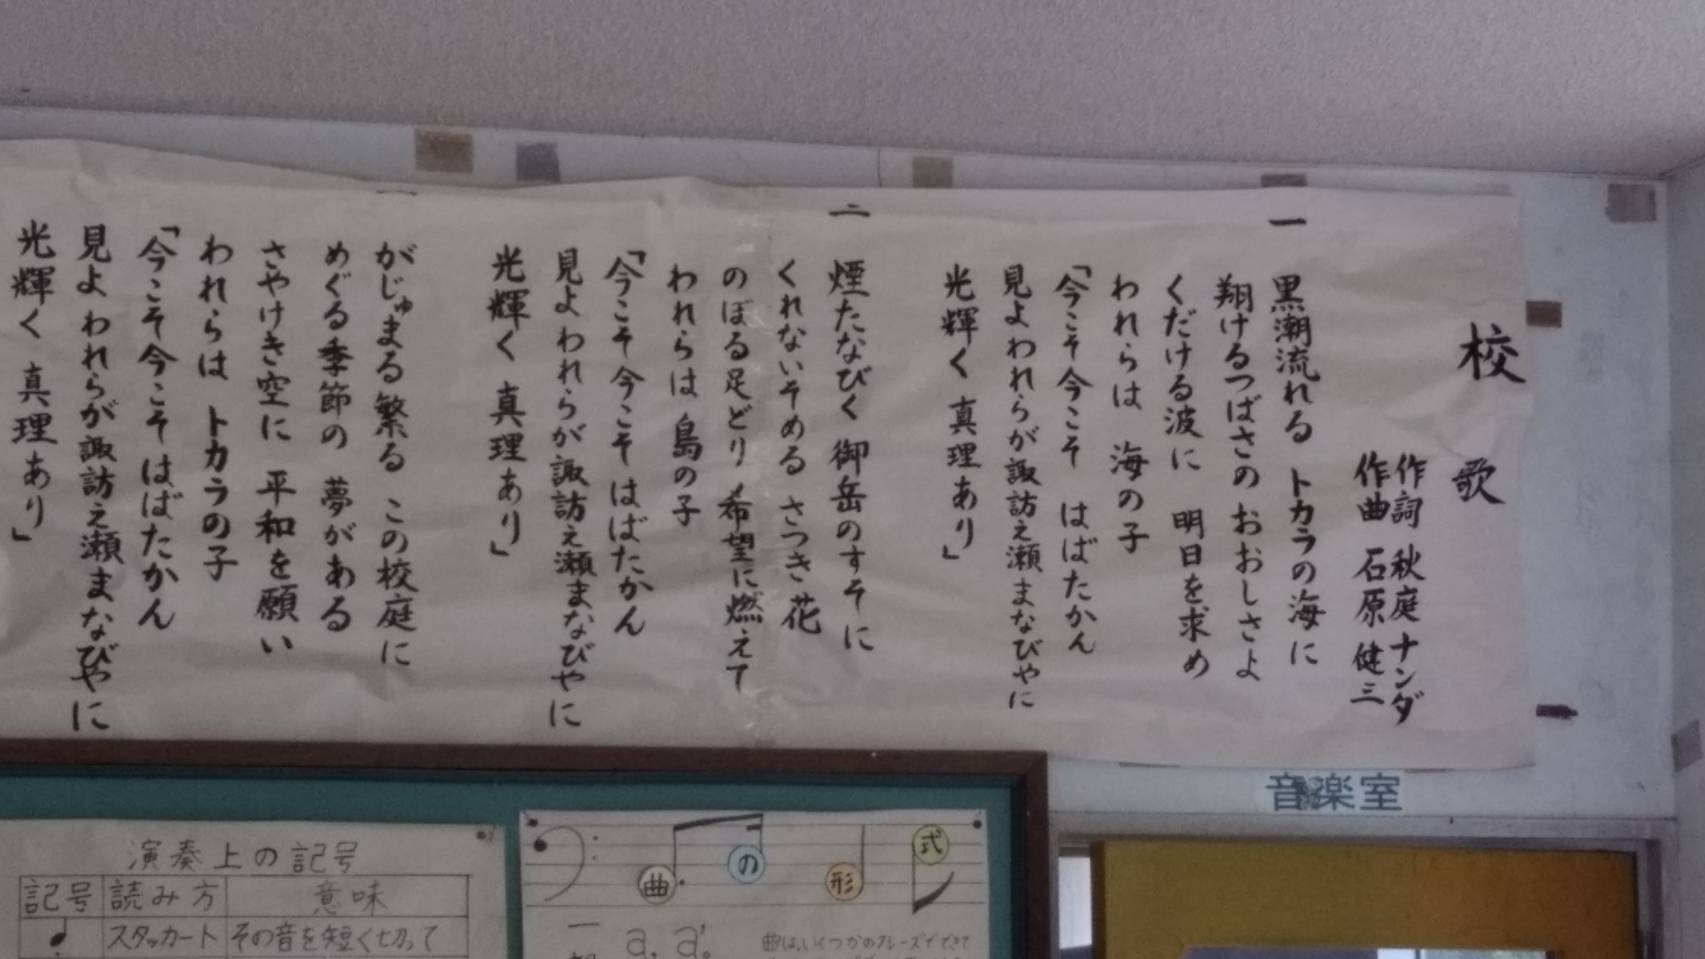 校歌
作詞 秋庭 ナンダ
作曲 石原 健三
一
黒潮流れる トカラの海に
翔けるつばさの おおしさよ
くだける波に 明日を求め
われらは 海の子
「今こそ今こそ はばたかん
見よ われらが 諏訪之瀬まなびやに
光輝く 真理あり」
二
煙たなびく 御岳のすそに
くれないそめる さつき花
のぼる足どり 希望に燃えて
われらは 島の子
「今こそ今こそ はばたかん
見よ われらが 諏訪之瀬まなびやに
光輝く 真理あり」
がじゅまる繁る この校庭に
めぐる季節の 夢がある
さやけき空に 平和を願い
われらは トカラの子
「今こそ今こそ はばたかん
見よ われらが 諏訪之瀬まなびやに
光輝く 真理あり」
音楽室
演奏上の記号
記号 読み方 意味
スタッカート その音を短く切って
曲の形式
一
a a'
曲は、いくつかのフレーズでできて